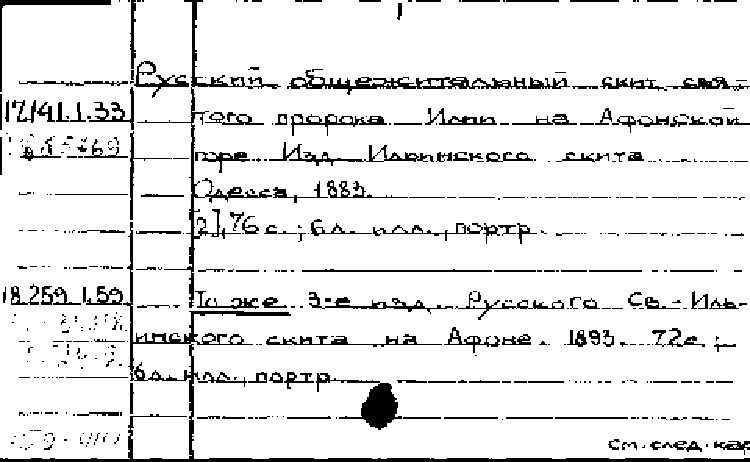 Русский общежительный скит свя-
17.141.1.33 того пророка Илии на Афонской
горе Изд. Ильинского скита
Одесса, 1883.
[2], 76 с.; 6 л. илл., портр.
18.259.1.59 То же 3-е изд. Русского Св.-Иль-
инского скита на Афоне. 1893. 72 с.;
6 л. илл., портр.
См. след. кар